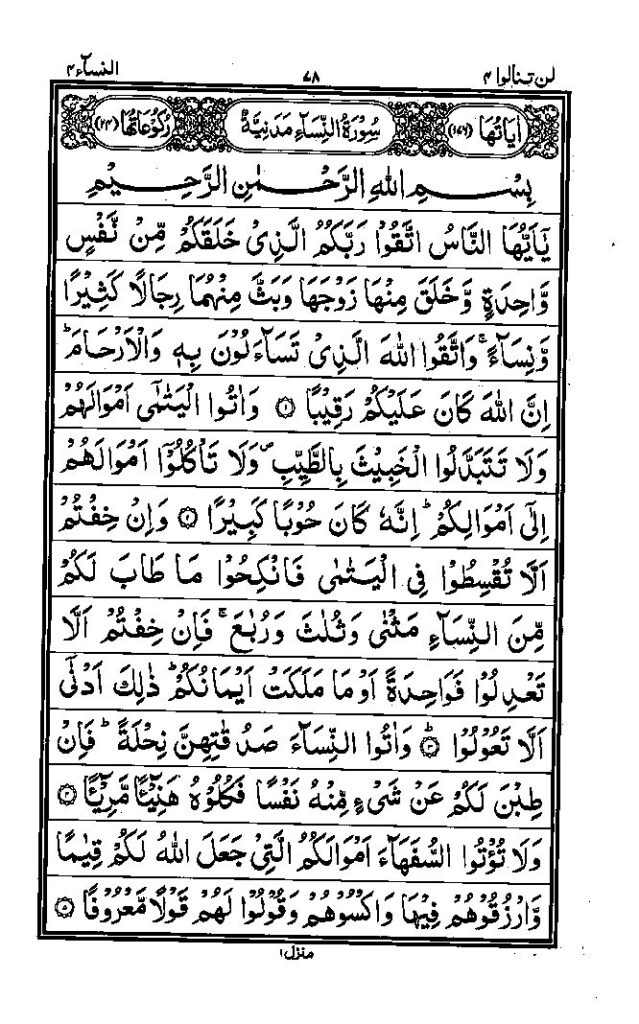 لن تنالوا ۴ ۷۸ النسآء ۴
اٰیَاتُهَا (۱۷۶) سُوْرَةُ النِّسَآءِ مَدَنِیَّةٌ رُکُوْعَاتُهَا (۲۴)
بِسْمِ اللّٰهِ الرَّحْمٰنِ الرَّحِیْمِ
یٰۤاَیُّهَا النَّاسُ اتَّقُوْا رَبَّکُمُ الَّذِیْ خَلَقَکُمْ مِّنْ نَّفْسٍ
وَّاحِدَةٍ وَّخَلَقَ مِنْهَا زَوْجَهَا وَبَثَّ مِنْهُمَا رِجَالًا کَثِیْرًا
وَّنِسَآءً ۚ وَاتَّقُوا اللّٰهَ الَّذِیْ تَسَآءَلُوْنَ بِهٖ وَالْاَرْحَامَ ؕ
اِنَّ اللّٰهَ کَانَ عَلَیْکُمْ رَقِیْبًا ۝۱ وَاٰتُوا الْیَتٰمٰۤی اَمْوَالَهُمْ
وَلَا تَتَبَدَّلُوا الْخَبِیْثَ بِالطَّیِّبِ ۪ وَلَا تَاْکُلُوْۤا اَمْوَالَهُمْ
اِلٰۤی اَمْوَالِکُمْ ؕ اِنَّهٗ کَانَ حُوْبًا کَبِیْرًا ۝۲ وَاِنْ خِفْتُمْ
اَلَّا تُقْسِطُوْا فِی الْیَتٰمٰی فَانْکِحُوْا مَا طَابَ لَکُمْ
مِّنَ النِّسَآءِ مَثْنٰی وَثُلٰثَ وَرُبٰعَ ۚ فَاِنْ خِفْتُمْ اَلَّا
تَعْدِلُوْا فَوَاحِدَةً اَوْ مَا مَلَکَتْ اَیْمَانُکُمْ ؕ ذٰلِکَ اَدْنٰۤی
اَلَّا تَعُوْلُوْا ۝۳ وَاٰتُوا النِّسَآءَ صَدُقٰتِهِنَّ نِحْلَةً ؕ فَاِنْ
طِبْنَ لَکُمْ عَنْ شَیْءٍ مِّنْهُ نَفْسًا فَکُلُوْهُ هَنِیْٓـًٔا مَّرِیْٓـًٔا ۝۴
وَلَا تُؤْتُوا السُّفَهَآءَ اَمْوَالَکُمُ الَّتِیْ جَعَلَ اللّٰهُ لَکُمْ قِیٰمًا
وَّارْزُقُوْهُمْ فِیْهَا وَاکْسُوْهُمْ وَقُوْلُوْا لَهُمْ قَوْلًا مَّعْرُوْفًا ۝۵
منزل ۱